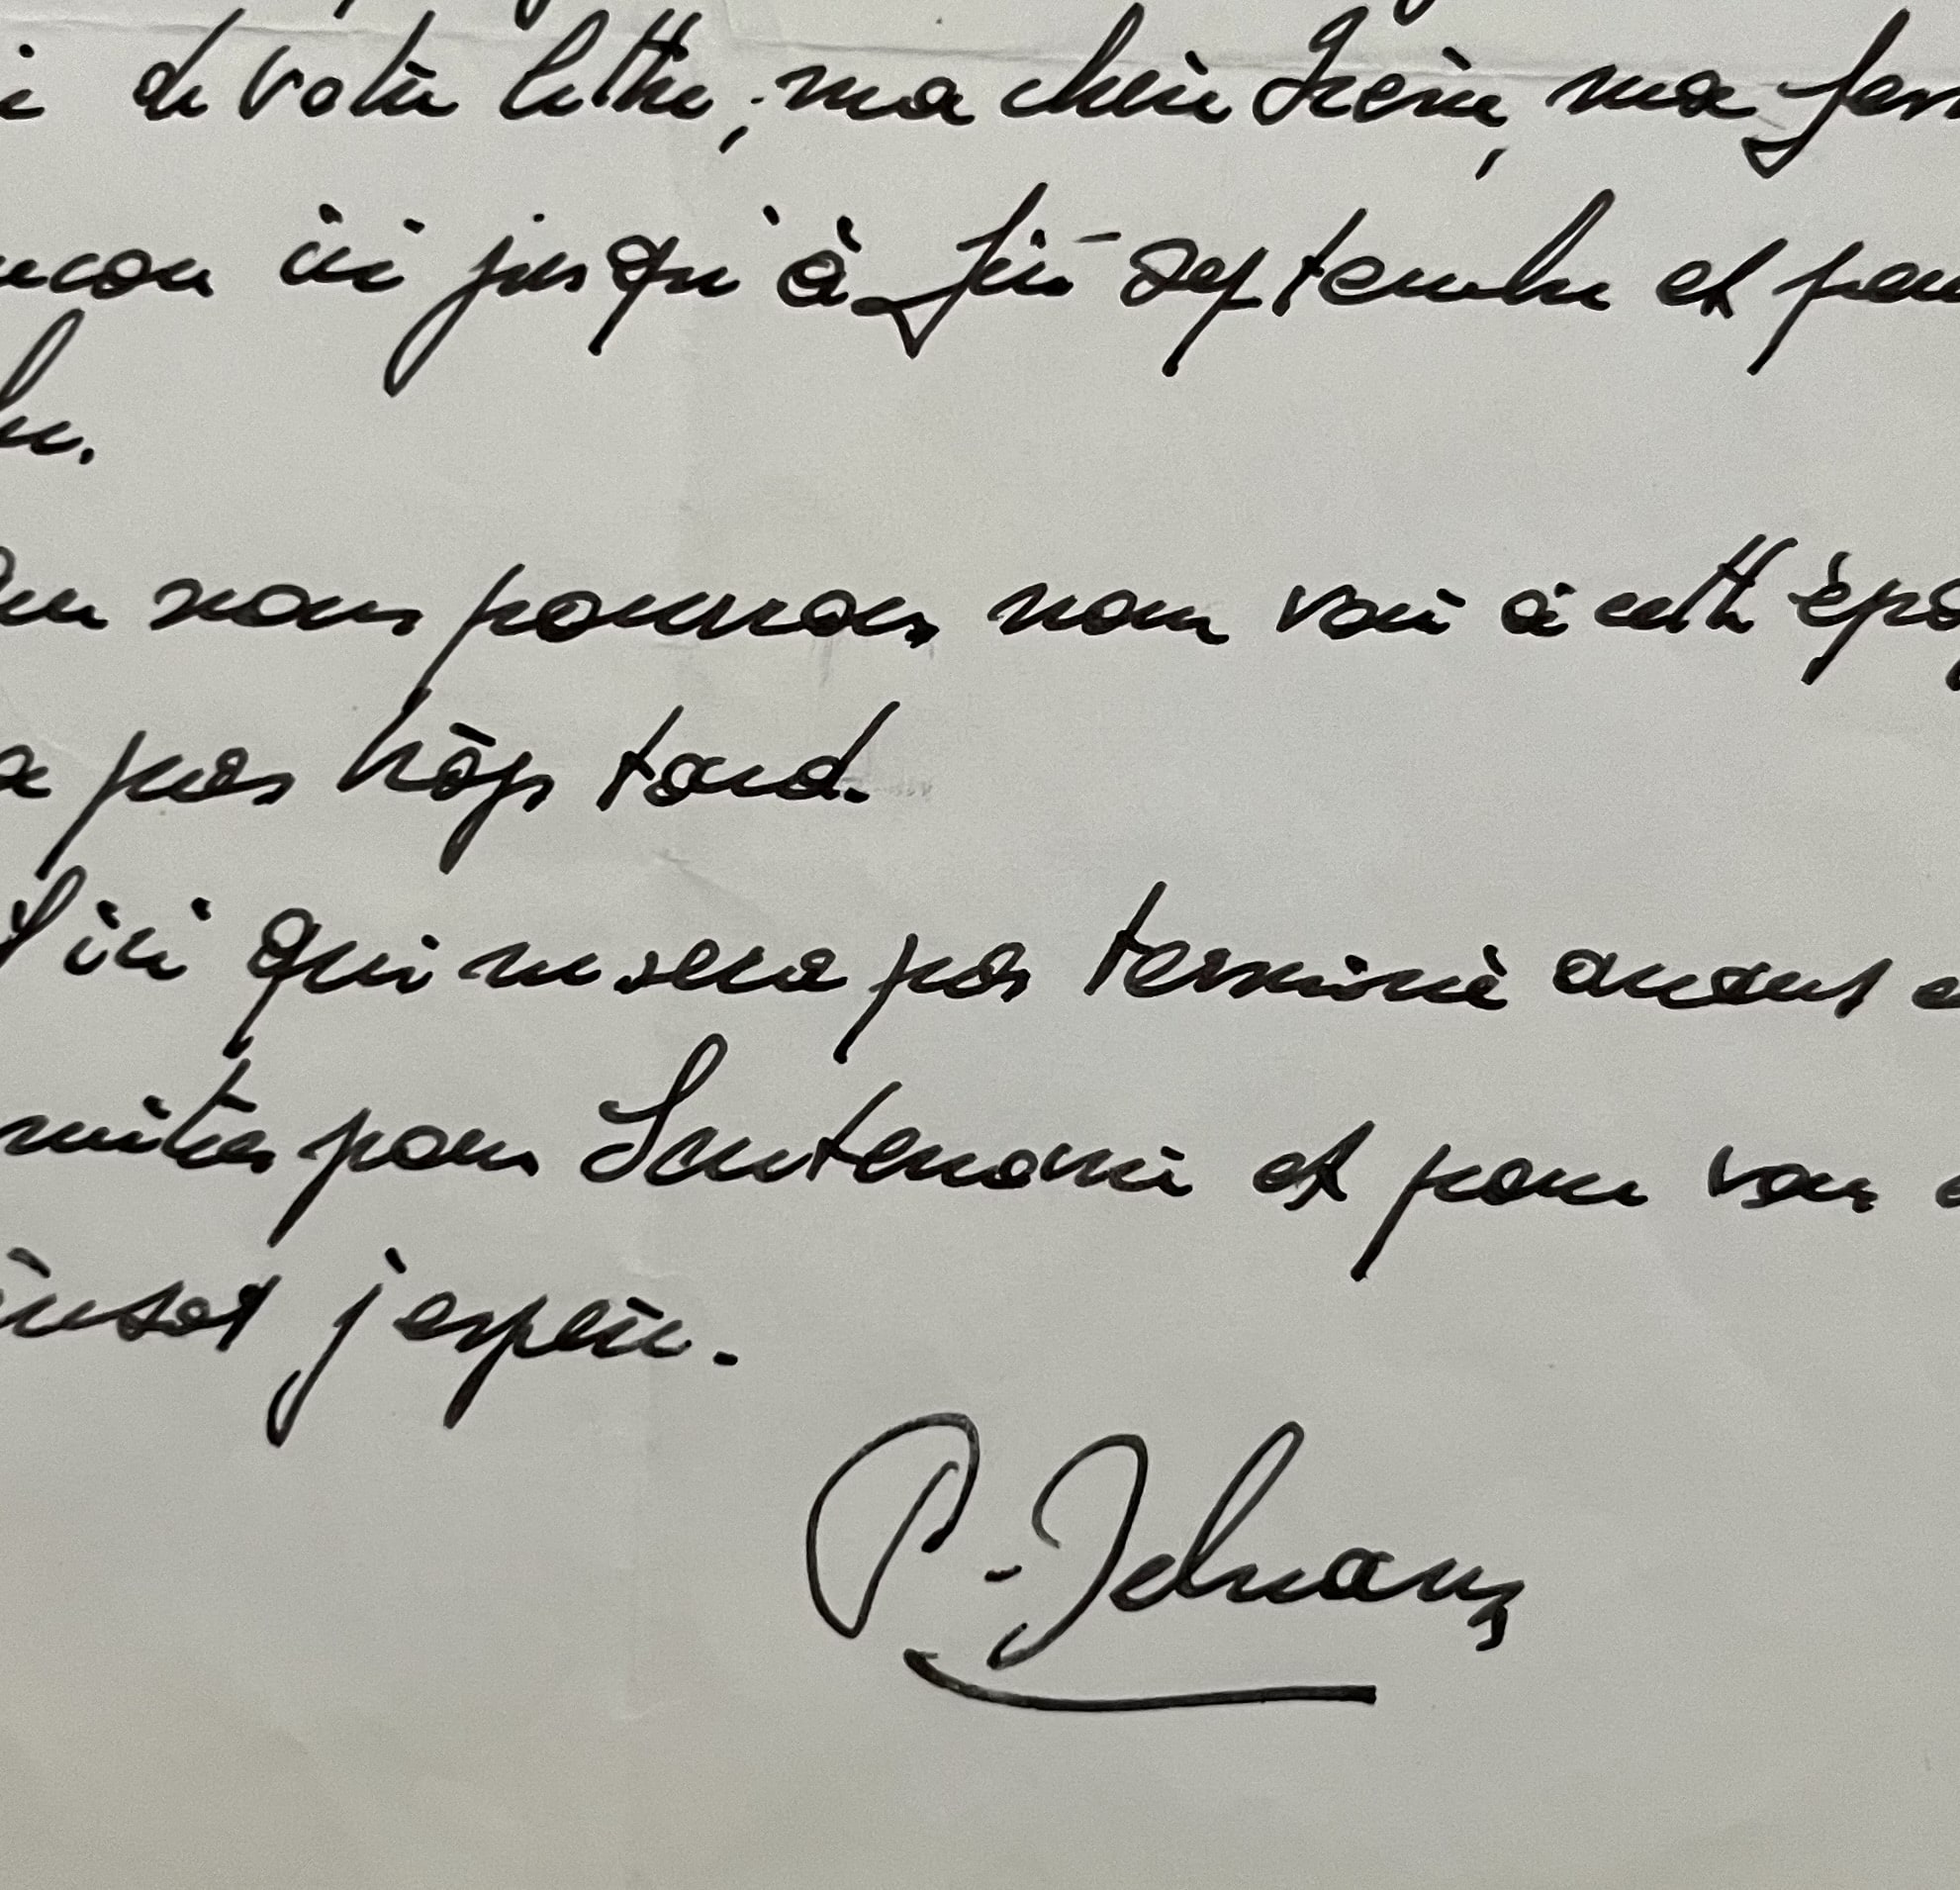 i de votre lettre, ma chère Irène, ma fem
ncore ici jusqu'à fin septembre et peu
bre.
que nous pourrons nous voir à cette épo
a pas trop tard.
ici qui ne sera pas terminé avant
mitiés pour Lautenouri et pour vous
j'espère.
P. Jelmans